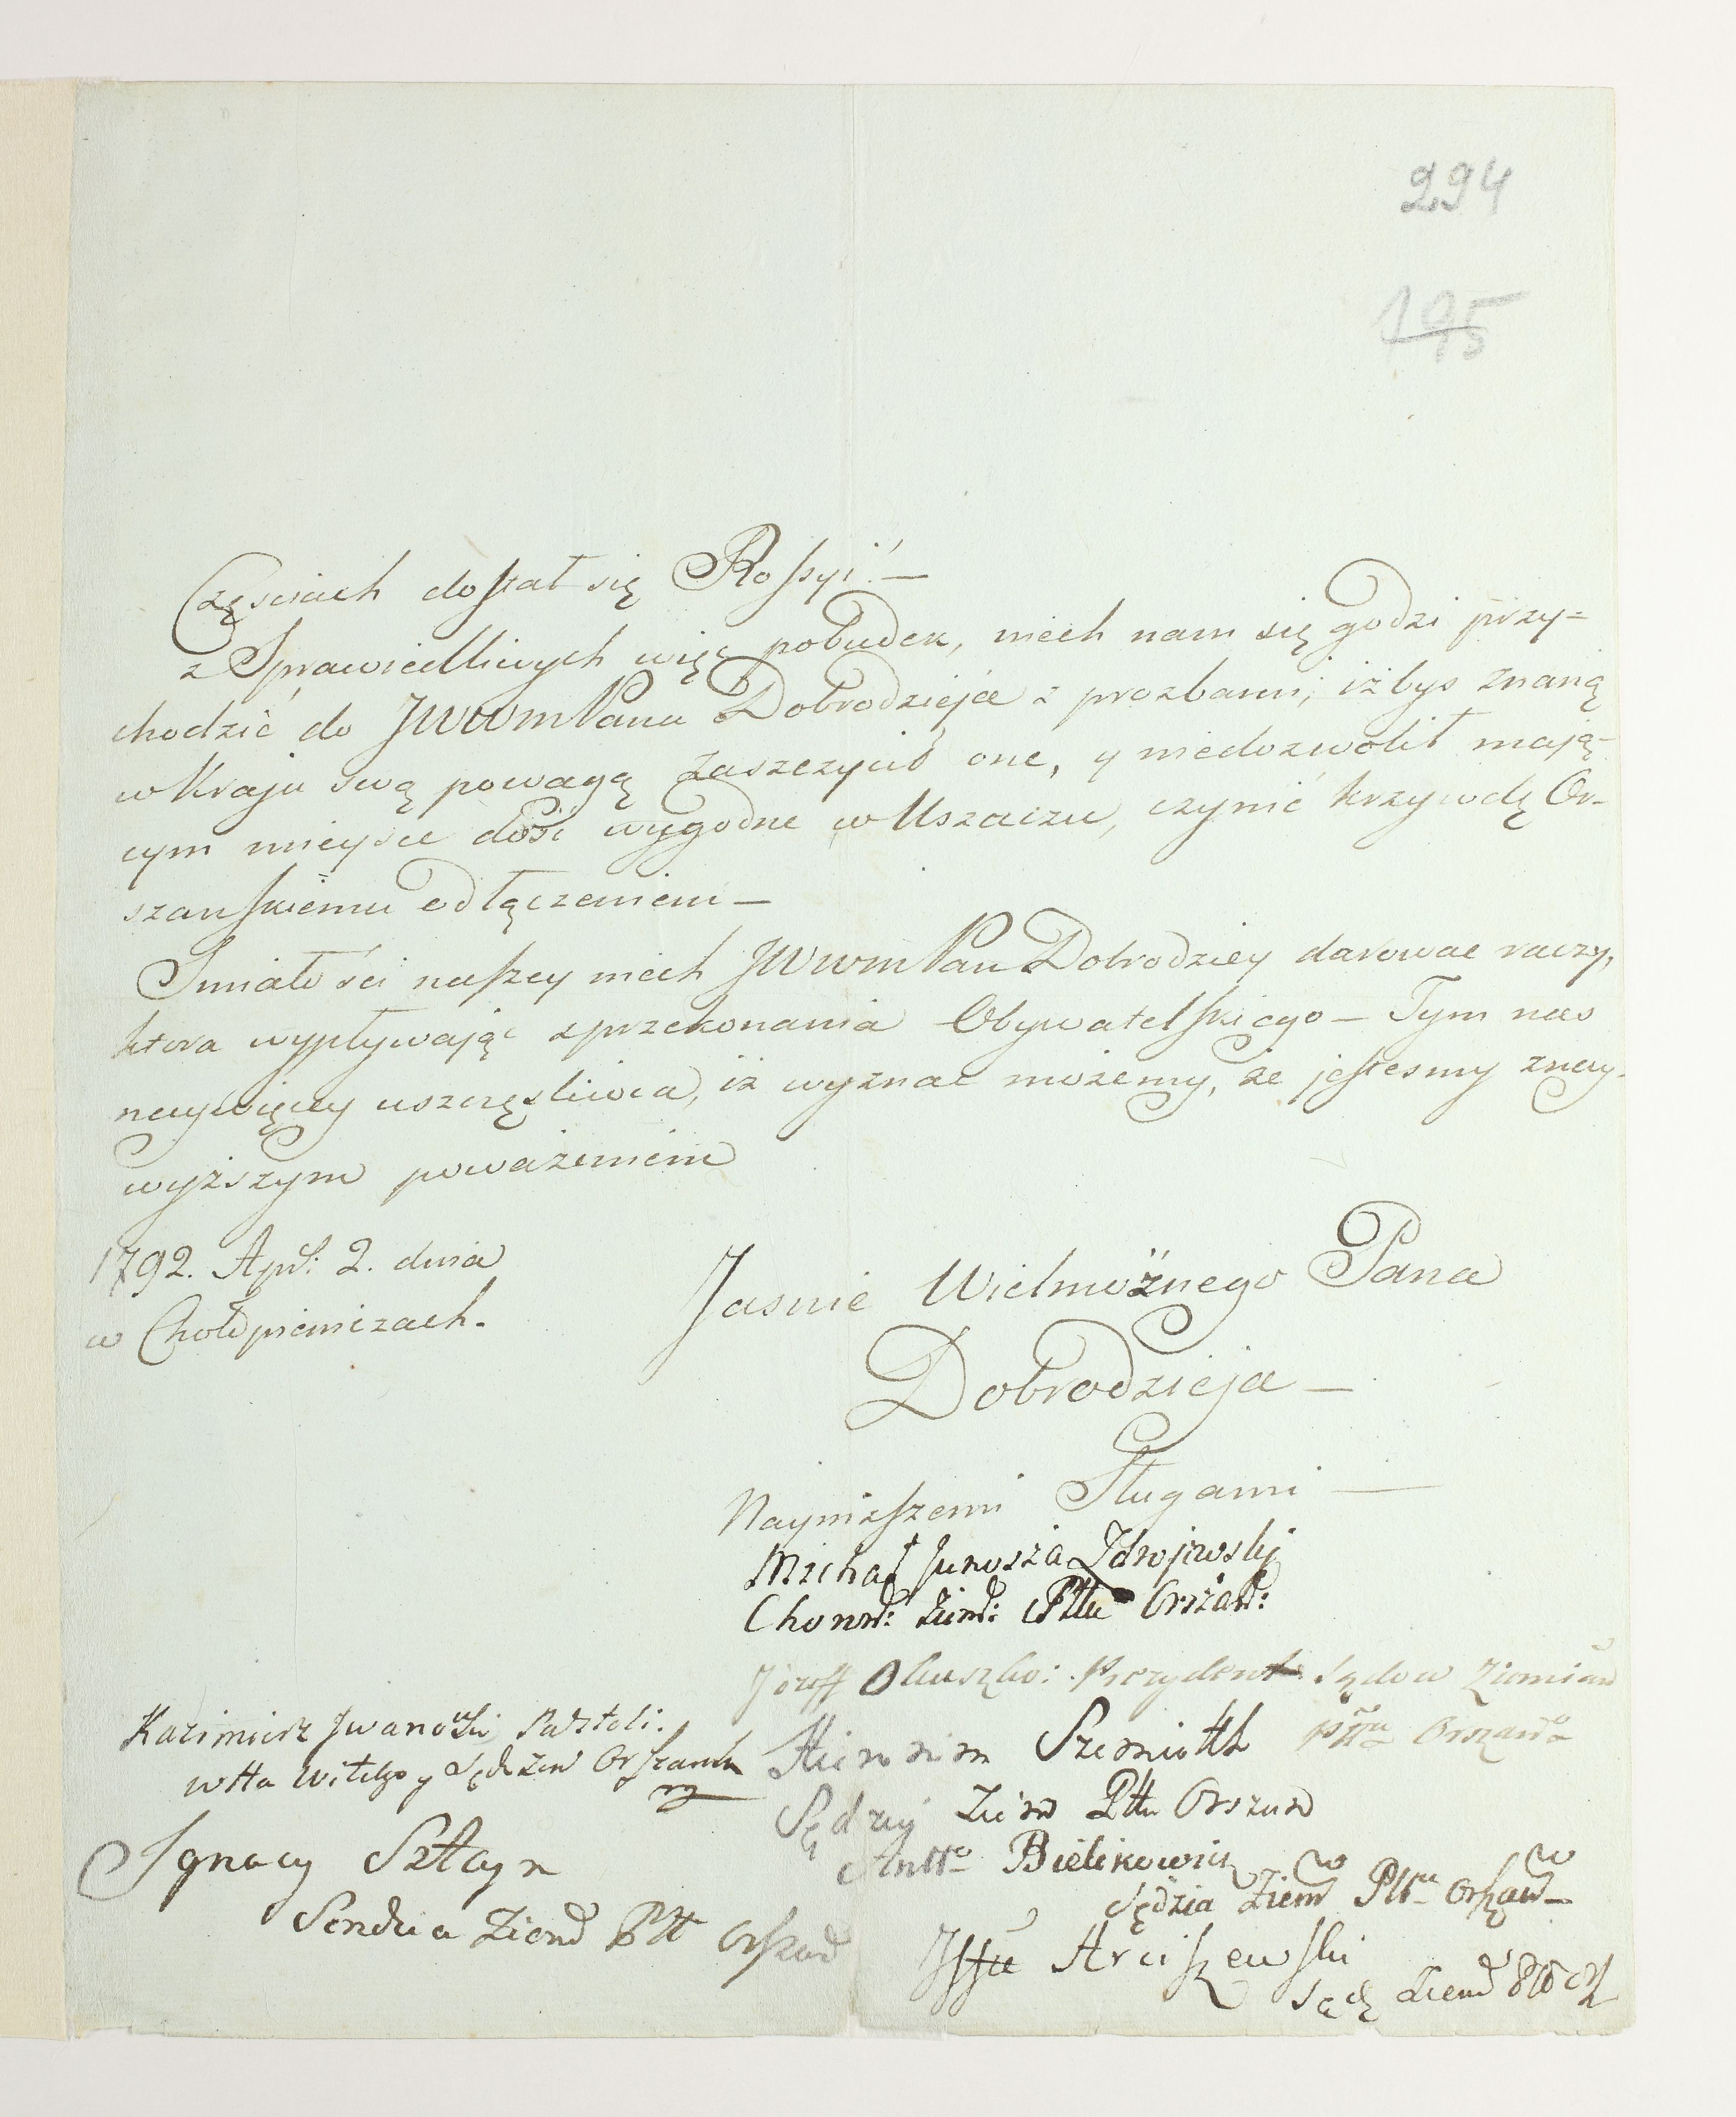 294
195
Częsciach dostał się Rossyi! —
z Sprawiedliwych więc pobudek, niech nam się godzi przy-
chodzić do JWWmPana Dobrodzieja z prozbami, iżbys znaną
w Kraju swą powagą zaszczycił one, y niedozwolił mają-
cym mieysce dość wygodne w Uszaczu, czynić krzywdę Or-
szanskiemu odłączeniem —
Smiałości naszey niech JWWmPan Dobrodziey darować raczy,
ktora wypływając z przekonania Obywatelskiego — Tym nas
naywięcey uszczęsliwia, iż wyznać możemy, że jestesmy z nay-
wyższym poważeniem
1792. Apl: 2. dnia
w Chołopieniczach.
Jasnie Wielmożnego Pana
Dobrodzieja —
Nayniższemi Sługami —
Michał Junosza Zdrojewsky
Choronż: Ziem: Pttu Orszań:
Józeff Obuszko: Prezydent Sądow Ziemian
Pttu Orszań
Kazimierz Iwanowski
Hieronim Szemiotth
Sędzij Ziem Pttu Orszan
Bielikowicz
Sędzia Ziem Pttu Orszań
Ignacy Sztayn
Sendzia Ziem Ptt Orszań
Arciszewski
Sędz Ziem